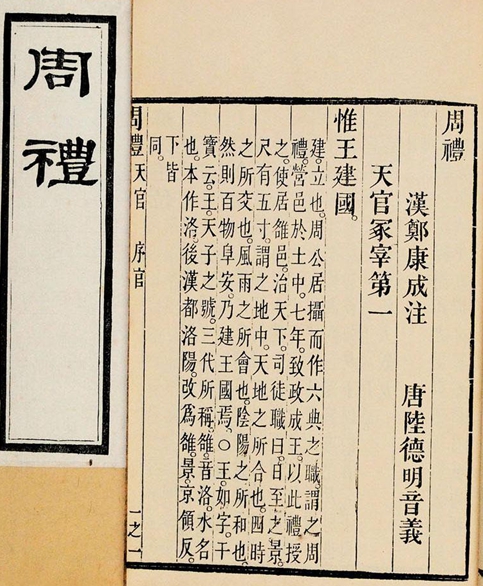 周禮
漢鄭康成注 唐陸德明音義
天官冢宰第一
惟王建國。
建。立也。周公居攝而作六典之職。謂之周
禮。營邑於土中。七年。致政成王。以此禮授
之。使居雒邑。治天下。司徒職曰。日至之景。
尺有五寸。謂之地中。天地之所合也。四時
之所交也。風雨之所會也。陰陽之所和也。
然則百物阜安。乃建王國焉。○王。如字。干
寶云。王。天子之號。三代所稱。雒音洛。水名
也。本作洛。後漢都洛陽。改爲雒。景。京領反。
下皆
同。
周禮 天官 序官 一之一
周禮